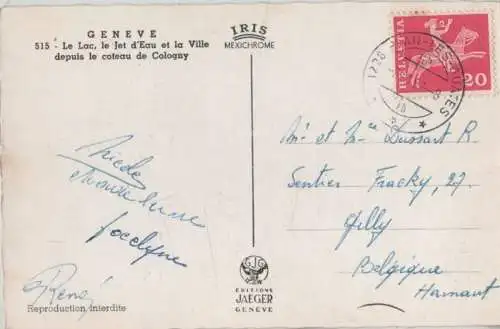 GENEVE
515 - Le Lac, le Jet d'Eau et la Ville
depuis le coteau de Cologny
IRIS
MEXICHROME
HELVETIA
20
1228
Mr et Me Dussart R
Sentier Fracky, 27
Gilly
Belgique
Hainaut
Jocelyne
René
EDITIONS
JAEGER
GENEVE
Reproduction interdite